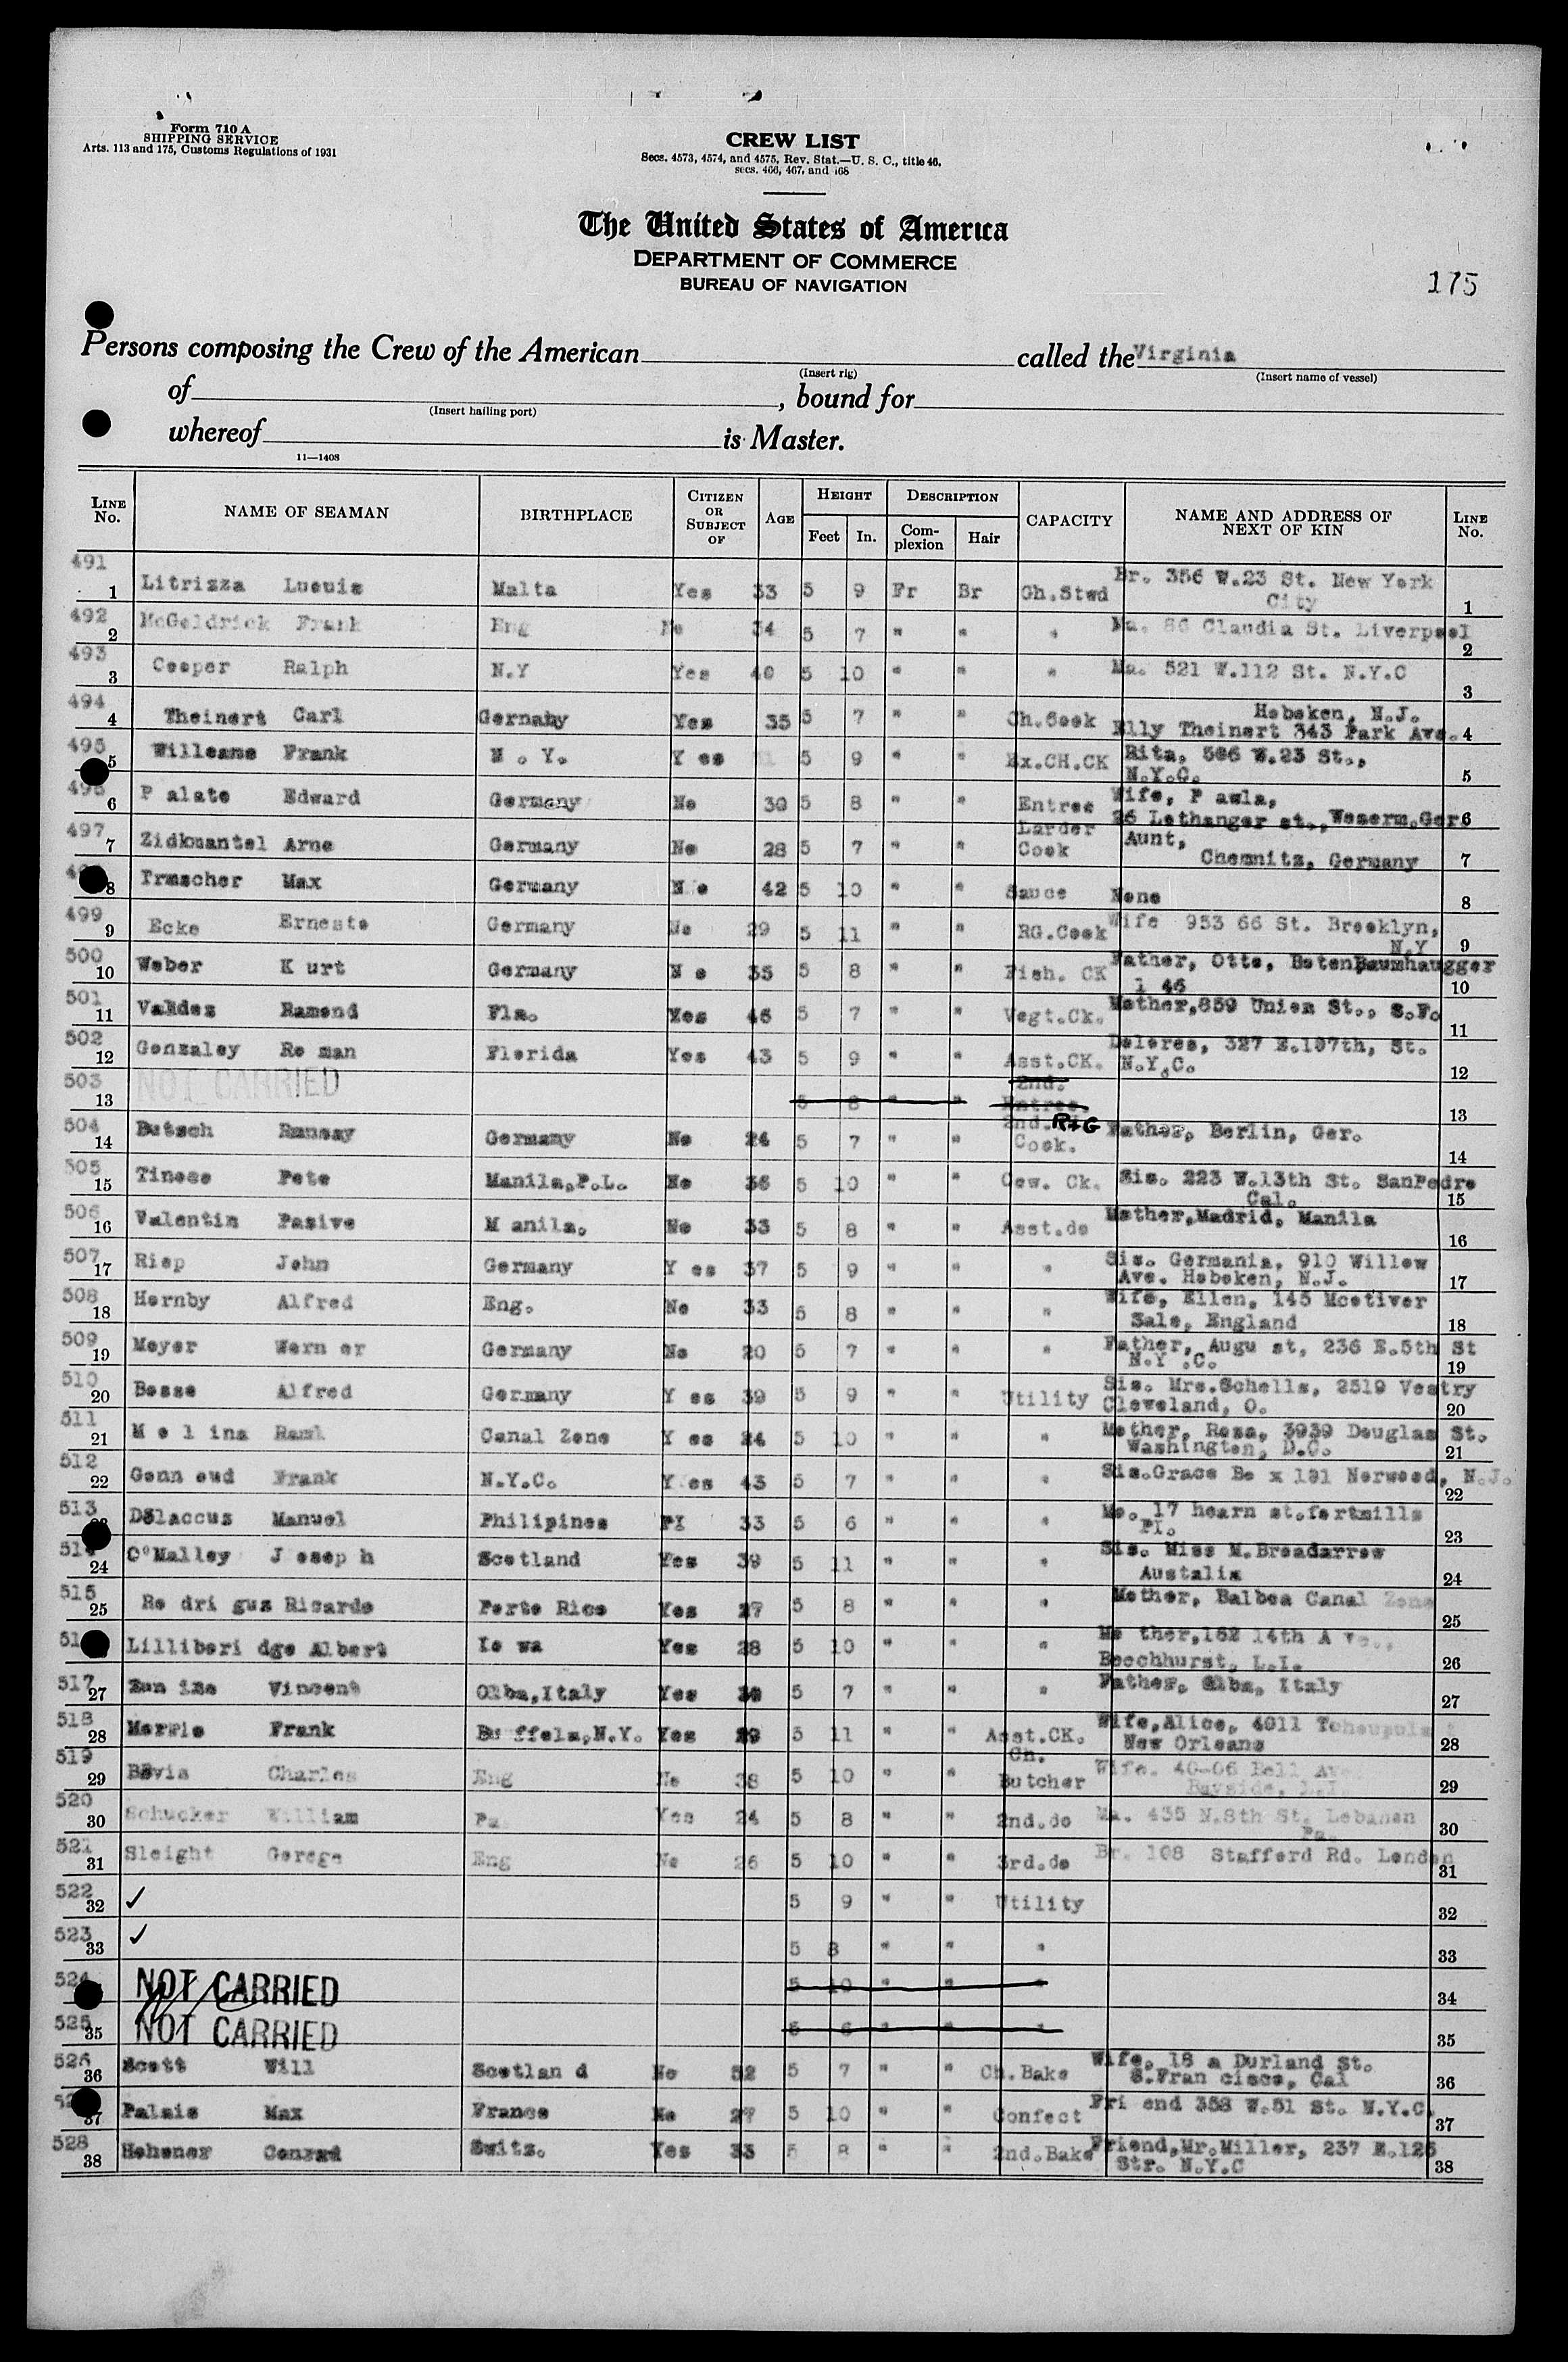 Form 710 A
SHIPPING SERVICE
Arts. 113 and 175, Customs Regulations of 1931
CREW LIST
Secs. 4573, 4574, and 4575, Rev. Stat.—U. S. C., title 46,
secs. 466, 467, and 468
The United States of America
DEPARTMENT OF COMMERCE
BUREAU OF NAVIGATION
175
Persons composing the Crew of the American called the Virginia
(Insert rig) (Insert name of vessel)
of , bound for
(Insert hailing port)
whereof is Master.
11—1408
LINE No. NAME OF SEAMAN BIRTHPLACE CITIZEN OR SUBJECT OF AGE HEIGHT Feet In. DESCRIPTION Complexion Hair CAPACITY NAME AND ADDRESS OF NEXT OF KIN LINE No.
491 1 Litrizza Luouis Malta Yes 33 5 9 Fr Br Ch.Stwd Br. 356 W.23 St. New York City 1
492 2 McGoldrick Frank Eng No 34 5 7 " " " Ma. 86 Claudia St. Liverpool 2
493 3 Cooper Ralph N.Y Yes 40 5 10 " " " Ma. 521 W.112 St. N.Y.C 3
494 4 Theinert Carl Yes 35 5 7 " " Ch.Cook Hoboken, N.J. Elly Theinert 343 Park Ave. 4
495 5 Frank N . Y. Y es 5 9 " " Ex.CH.CK Rita, 506 W.23 St., N.Y.C. 5
496 6 P alate Edward Germany No 30 5 8 " " Entree Wife, P aula, 26 Lothanger st., Weserm.Ger 6
497 7 Zidkmantel Arno Germany No 28 5 7 " " Larder Cook Aunt, Chemnitz, Germany 7
8 Max Germany N o 42 5 10 " " Sauce None 8
499 9 Ecke Ernesto Germany No 29 5 11 " " RG.Cook Wife 953 66 St. Brooklyn, N.Y 9
500 10 Weber K urt Germany N o 35 5 8 " " Fish. CK Father, Otto, 1 46 10
501 11 Valdez Ramond Fla. Yes 46 5 7 " " Vegt.Ck. Mother,859 Union St., S.F. 11
502 12 Gonzaley Ro man Florida Yes 43 5 9 " " Asst.CK. Dolores, 327 E.107th, St. N.Y.C. 12
503 13 NOT CARRIED 5 8 " " 2nd. Entree. 13
504 14 Butsch Germany No 24 5 7 " " 2nd. R+G Cook. Father, Berlin, Ger. 14
505 15 Tinoso Pete Manila,P.L. No 36 5 10 " " Cew. Ck. Sis. 223 W.13th St. SanPedro Cal. 15
506 16 Valentin Pasivo M anila. No 33 5 8 " " Asst.do Mother,Madrid, Manila 16
507 17 Riep John Germany Y es 37 5 9 " " " Sis. Germania, 910 Willow Ave. Hoboken, N.J. 17
508 18 Hornby Alfred Eng. No 33 5 8 " " " Wife, Ellen, 145 Mcetiver Sale, England 18
509 19 Meyer Wern er Germany No 20 5 7 " " " Father, Augu st, 236 E.5th St N.Y .C. 19
510 20 Besse Alfred Germany Y es 39 5 9 " " Utility Sis. Mrs.Schells, 2519 Vestry Cleveland, O. 20
511 21 M o l ina Canal Zone Y es 24 5 10 " " " Mother, Rosa, 3939 Douglas St. Washington, D.C. 21
512 22 Genn oud Frank N.Y.C. Y es 43 5 7 " " " Sis.Grace Bo x 191 Norwood, N.J. 22
513 Manuel Philipines PI 33 5 6 " " " Mo. 17 hearn st.fortmills PI. 23
24 O'Malley J osep h Scotland Yes 39 5 11 " " " Sis. Miss M.Broadarrow Austalia 24
515 25 Ro dri gus Ricardo Porto Rico Yes 27 5 8 " " " Mother, Balboa Canal Zone 25
Lilliberi dge Albert Io wa Yes 28 5 10 " " " Mo ther,152 14th A ve., Beechhurst, L.I. 26
517 27 Vincent Olba,Italy Yes 30 5 7 " " " Father, Olba, Italy 27
518 28 Frank Bu ffelo,N.Y. Yes 29 5 11 " " Asst.CK. Wife,Alice, 4011 New Orleans 28
519 29 Charles Eng No 38 5 10 " " Ch. Butcher Wife. 40-06 Bell Av Bayside, L.I. 29
520 30 Schucker William Pa Yes 24 5 8 " " 2nd.do Ma. 435 N.8th St. Lebanon Pa. 30
521 31 Sleight Gerege Eng No 26 5 10 " " 3rd.do Br. 108 Stafford Rd. London 31
522 32 ✓ 5 9 " " Utility 32
523 33 ✓ 5 8 " " " 33
524 NOT CARRIED 5 10 " " " 34
525 35 NOT CARRIED 5 6 " " " 35
526 36 Scott Will Scotlan d No 52 5 7 " " Ch.Bake Wife, 18 a Durland St. S.Fran cisco, Cal 36
37 Palais Max France No 27 5 10 " " Confect Fri end 358 W.51 St. N.Y.C. 37
528 38 Hohener Conrad Switz. Yes 33 5 8 " " 2nd.Bake Friend,Mr.Miller, 237 E.125 Str. N.Y.C 38